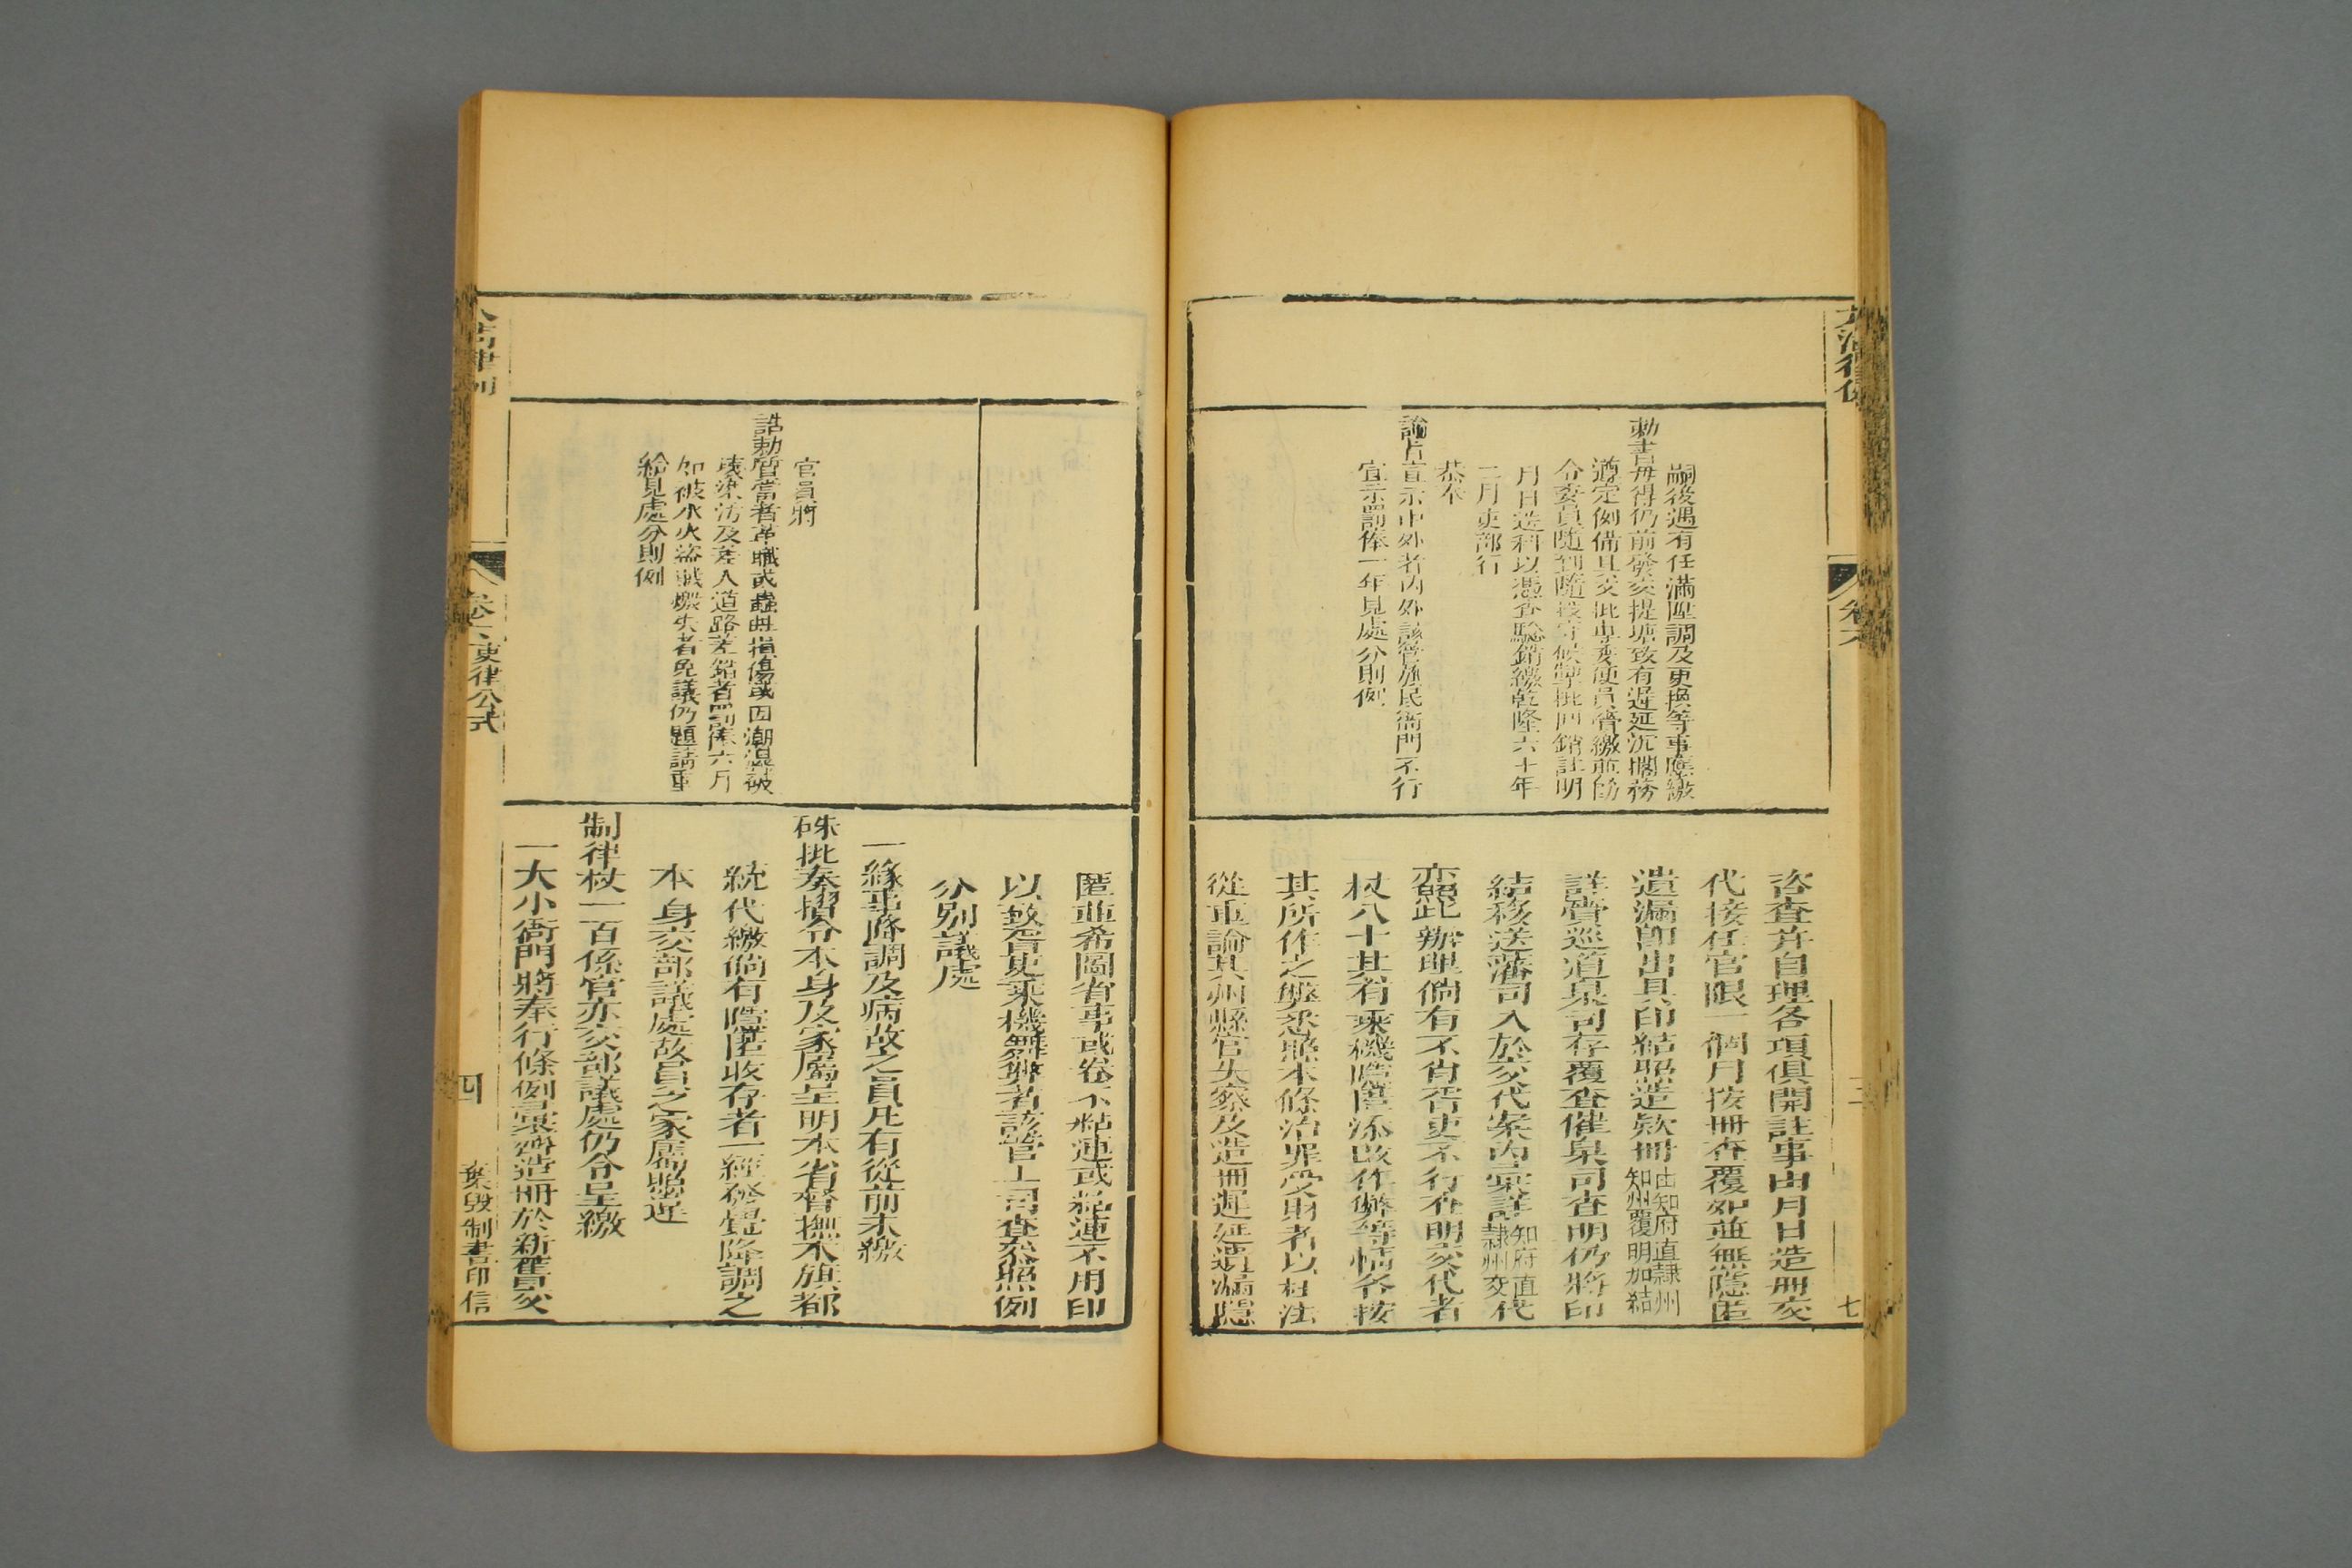 大清律例
卷六
嗣後遇有任滿陞調及更換等事應繳
勅書毋得仍前發交提塘致有遲延沉擱務
遵定例備具交批專委便員齎繳並飭
令委員隨到隨投守候掣批回銷註明
月日送科以憑查驗銷繳乾隆六十年
二月吏部行
恭奉
諭旨宣示中外者內外該管旗民衙門不行
宣示罰俸一年見處分則例
咨查并自理各項俱開註事由月日造冊交
代接任官限一個月按冊查覆如並無隱匿
遺漏即出具印結照造欵冊由知府直隸州知州覆明加結
詳齎巡道臬司存覆查催臬司查明仍將印
結移送藩司入於交代案內彙詳知府直隸州交代
亦照此辦理倘有不肖胥吏不行查明交代者
杖八十其有乘機隱匿添改作弊等情各按
其所作之弊悉照本條治罪受財者以枉法
從重論其州縣官失察及造冊遲延遺漏隱
七
匿並希圖省事或卷不粘連或粘連不用印
以致胥吏乘機舞弊者該管上司查叅照例
分別議處
一緣事降調及病故之員凡有從前未繳
硃批奏摺令本身及家屬呈明本省督撫本旗都
統代繳倘有隱匿收存者一經發覺降調之
本身交部議處故員之家屬照違
制律杖一百係官亦交部議處仍令呈繳
一大小衙門將奉行條例彙齊造冊於新舊員交
官員將
誥勅質當者革職或蟲蛀損傷或因潮濕破
壞染汚及差人道路差錯者罰俸六月
如被水火盜賊燬失者免議仍題請重
給見處分則例
大清律例
卷六吏律公式
四
棄毀制書印信